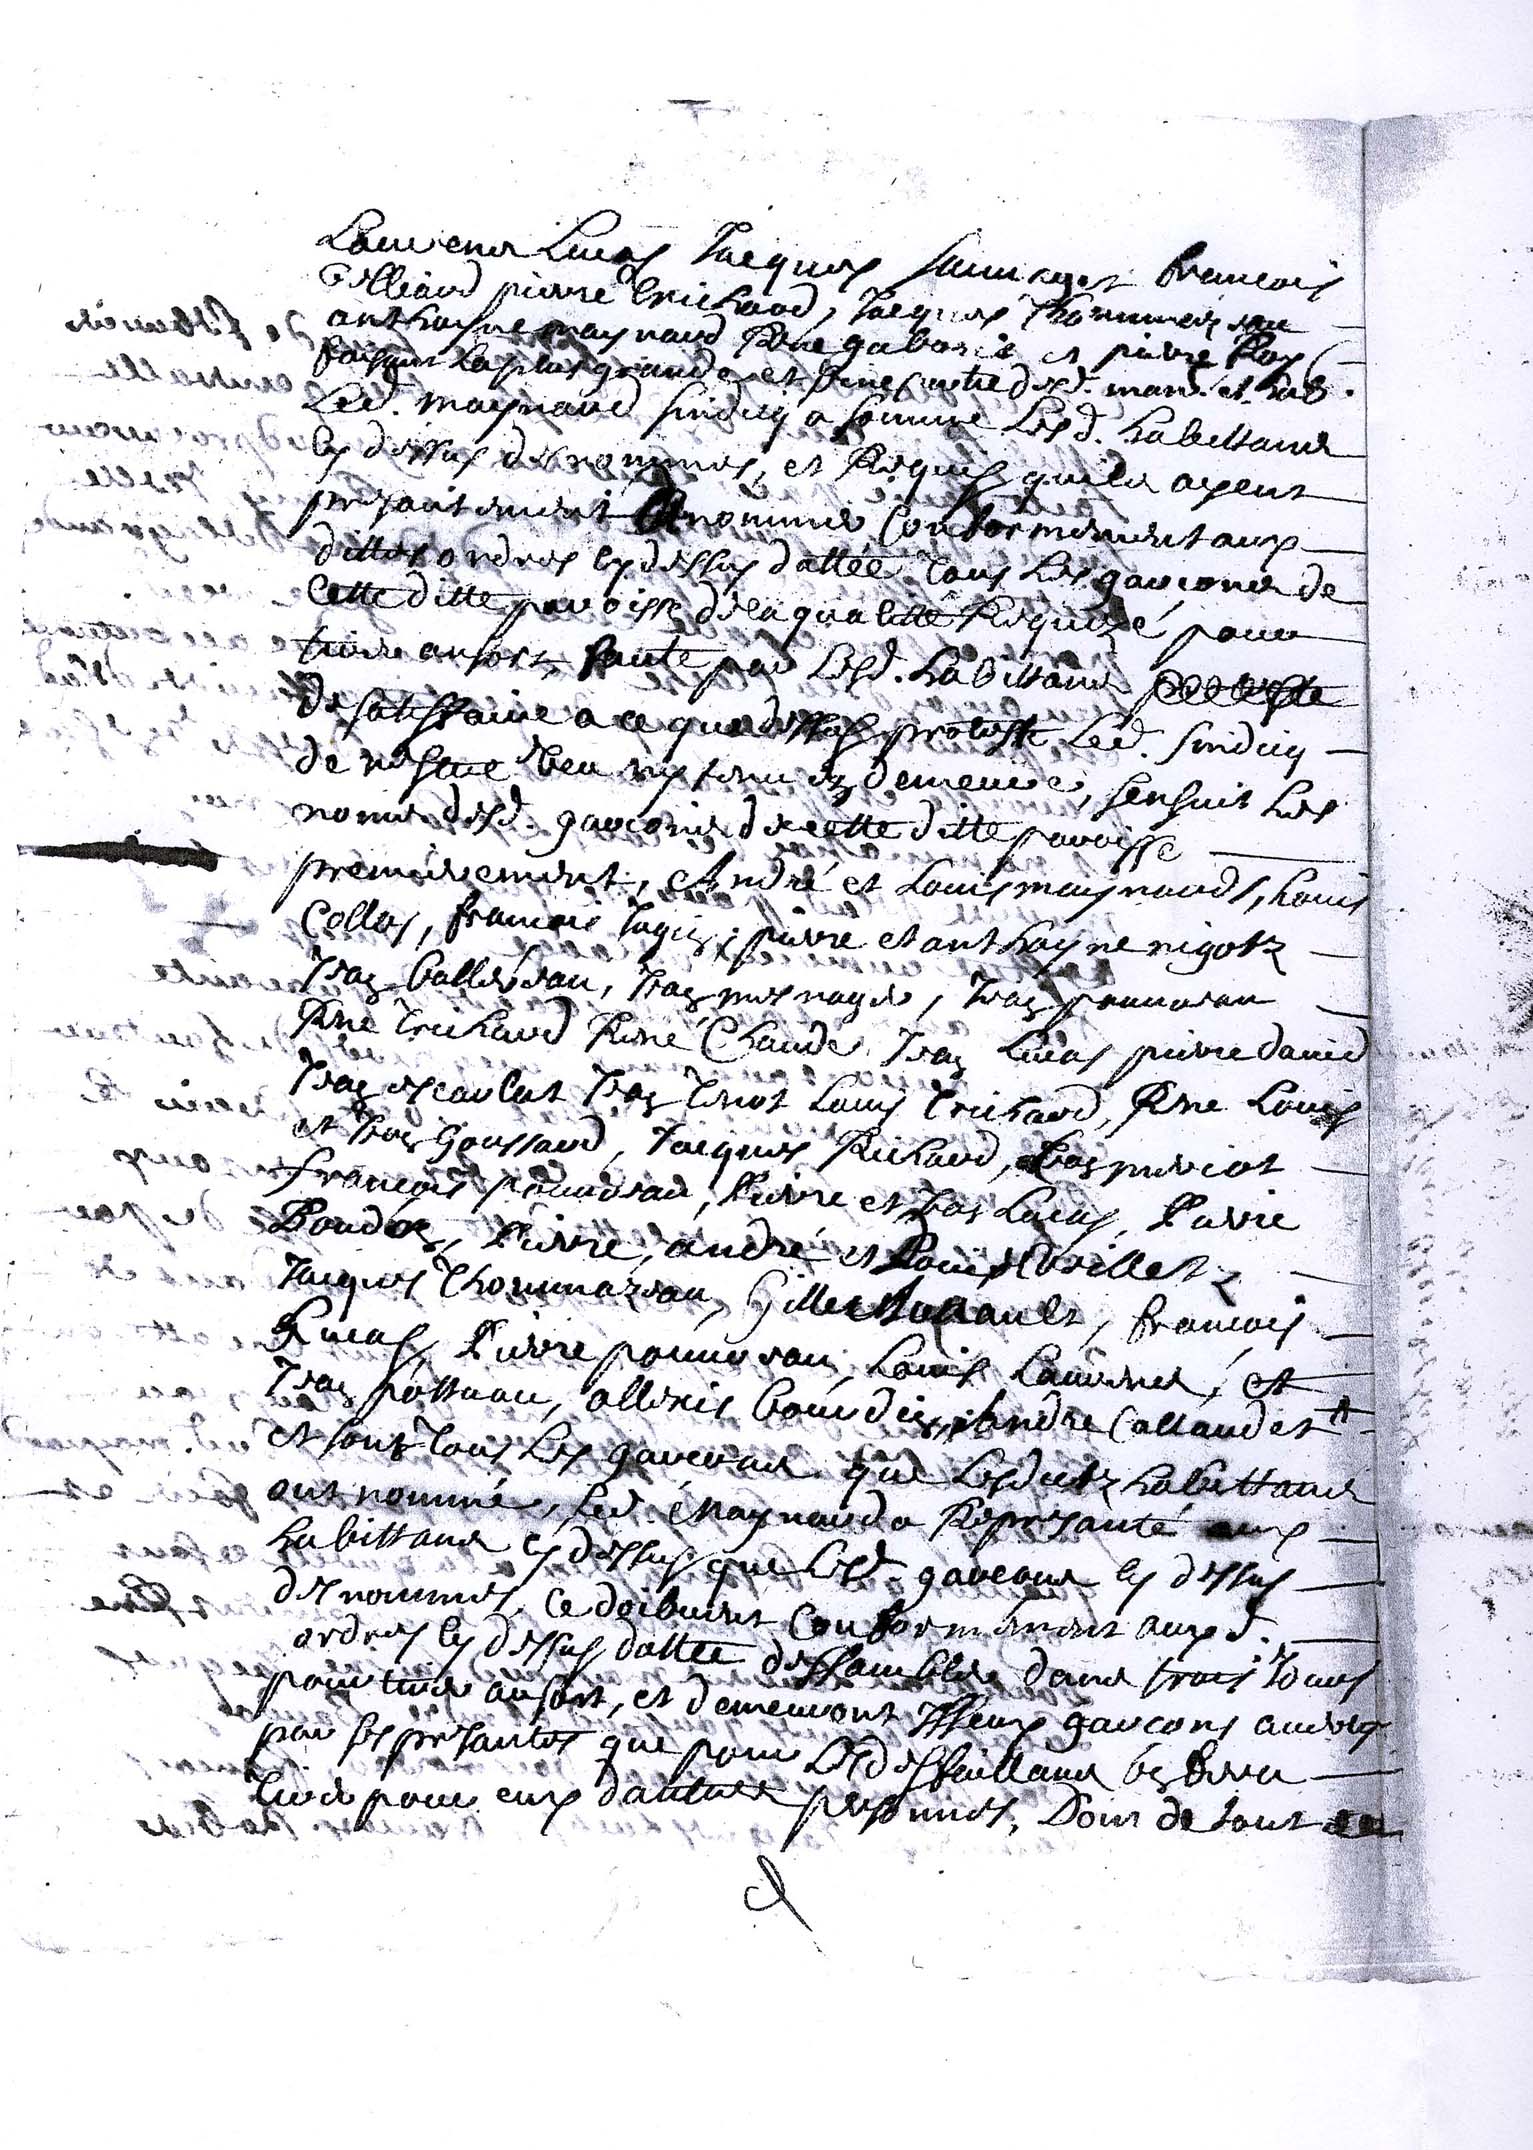 Laurens Lucas Jacques sauvaget francois
Gilliard pierre trichard, Jacques Thommazeau
anthoisne maynard Rene gaborit et pierre Roy
faisant la plus grande et sine partie desd. man. et hab.
Led. maynard sindicq a sommé Lesd. habittans
cy dessus desnommes, et Requis quils ayent
presantement a nommer Conformement aux
dittes ordres cy dessus dattée tous Les garcons de
Cette ditte paroisse de la qualitté Requize pour
tirer au sort, faute par Lesd. habittans
de satisffaire a ce que dessus proteste Led. sindicq
de nestre veu ny tenu en demeure, sensuit Les
noms desd. garcons de cette ditte paroisse
premierement, André et Louis maynards, Louis
Collas, francois Jagis, pierre et anthoyne nigotz
Jean ballereau, Jean mesnager, Jean
Rene trichard René Chande Jean Lucas pierre david
Jean escarlat Jean Louis trichard, Rene Louis
et Jean Goussard, Jacques Richard,
francois pouvreau, Pierre et Jean Lucas, Pierre
Pierre, andré et Louis
Jacques Thommazeau, Gilles francois
Lucas, Pierre pouvreau, Louis Laurens, et
Jean potteau, allexis bourdin, andre Callaudet
et sont tous Les garcons que Lesditz habittans
ont nommé, Led. Maynard a Represanté aux
habittans cy dessus que Lesd. garcons cy dessus
desnommes, ce doibvent Conformement auxd.
ordres cy dessus dattée dessambler dans trois Jours
pour tirer au sort, et demeuront Iceux garcons advertis
par ses presantes que pour Lesdeffaillans
tirer pour eux dautres personnes, Dont de tout ce